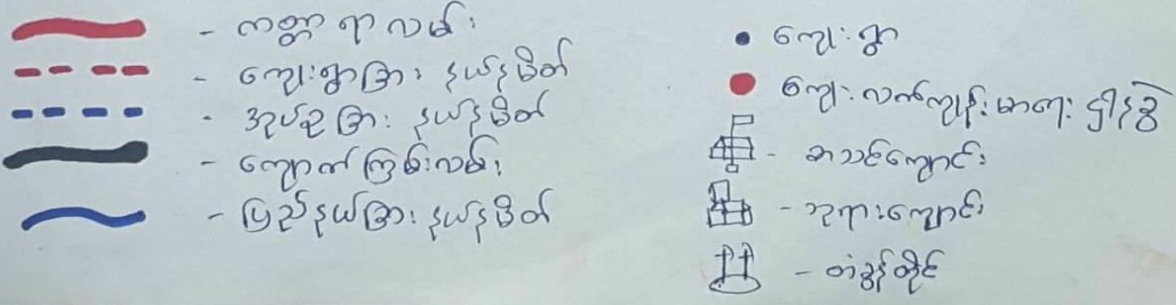 - ကတ္တရာလမ်း
- ကျေးရွာခြား နယ်နမိတ်
- အုပ်စုခြား နယ်နမိတ်
- ကျောက်ကြမ်းလမ်း
- ပြည်နယ်ခြား နယ်နမိတ်
ကျေးရွာ
ကျေးလက်ကျန်းမာရေး ဌာနခွဲ
- စာသင်ကျောင်း
- ဘုရားကျောင်း
- တံခွန်တိုင်